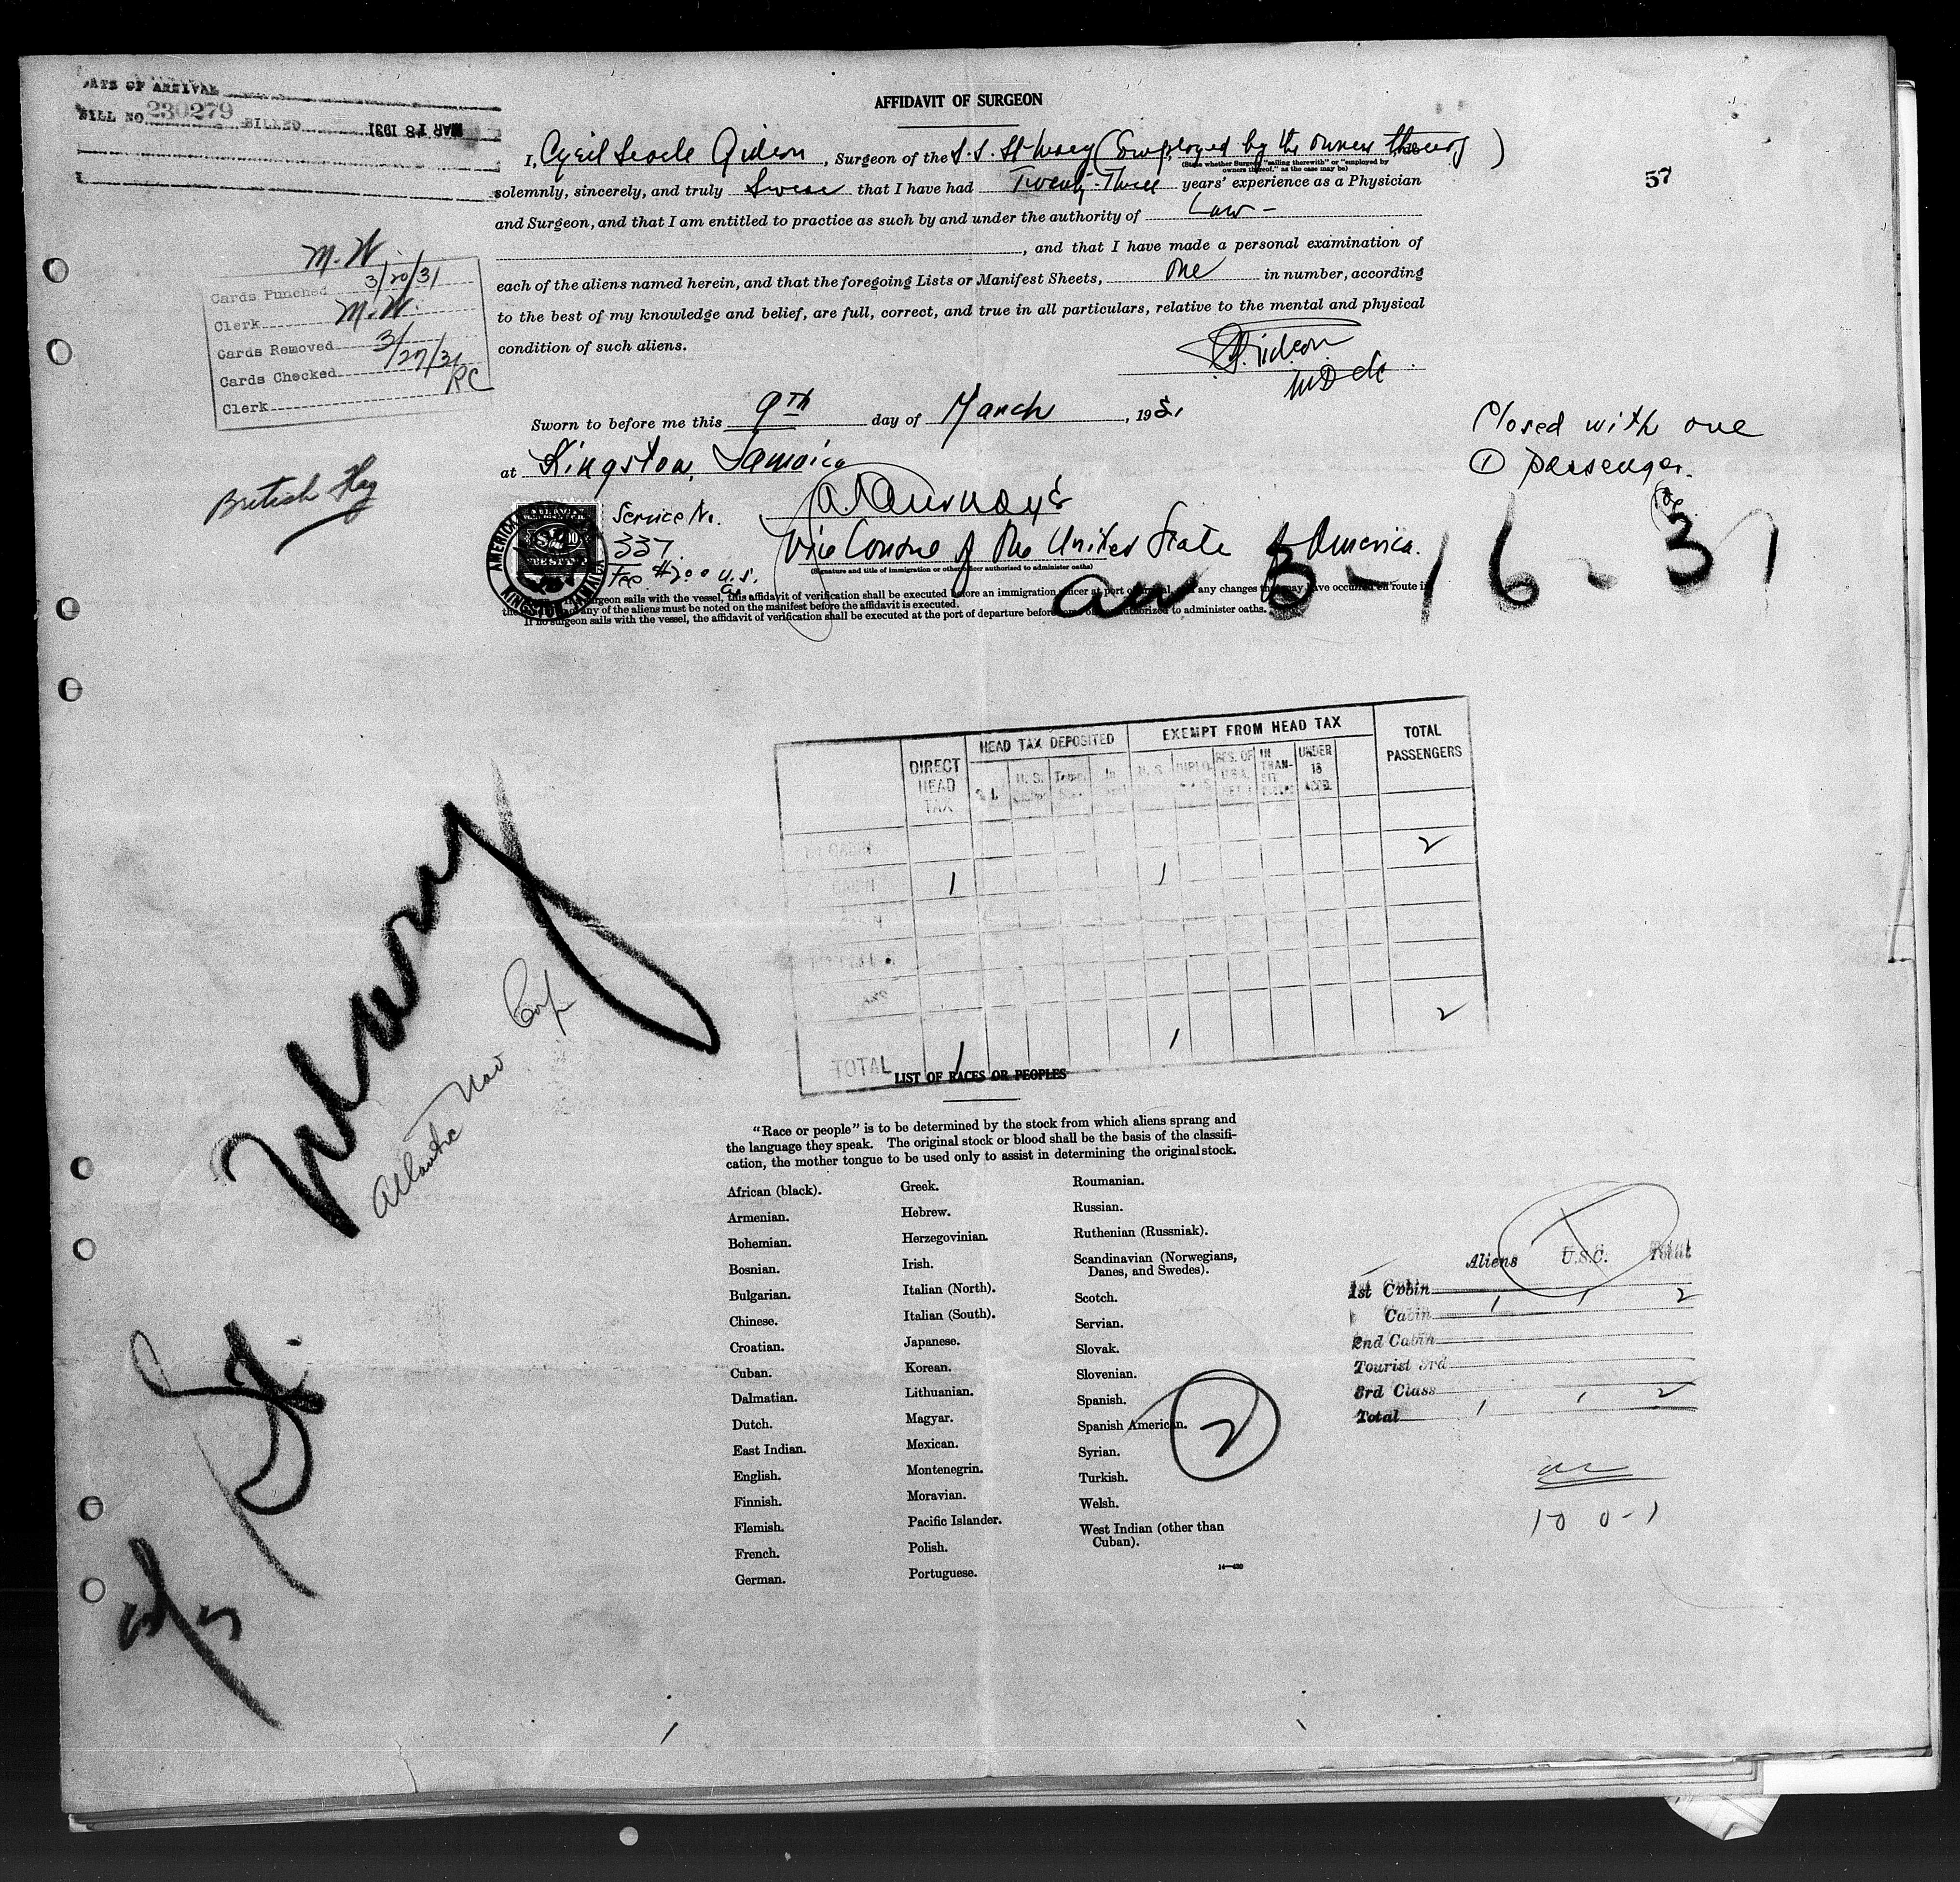 DATE OF ARRIVAL
BILL NO. 230279 BILLED MAR 18 1931
AFFIDAVIT OF SURGEON
I, Cyril Searle Gideon, Surgeon of the S.S. St Mary (Employed by the owners thereof)
(State whether Surgeon "sailing therewith" or "employed by
owners thereof," as the case may be)
57
solemnly, sincerely, and truly Swear that I have had Twenty-Three years' experience as a Physician
and Surgeon, and that I am entitled to practice as such by and under the authority of Law-
, and that I have made a personal examination of
each of the aliens named herein, and that the foregoing Lists or Manifest Sheets, One in number, according
to the best of my knowledge and belief, are full, correct, and true in all particulars, relative to the mental and physical
condition of such aliens.
M.W.
Cards Punched 3/20/31
Clerk M.W.
Cards Removed
Cards Checked 3/27/31
Clerk RC
Gideon
Sworn to before me this 9th day of March, 1931
at Kingston, Jamaica
Closed with one
① passenger.
British Flag
Service No.
337.
Fee $2.00 U.S.
Vice Consul of the United State of America.
(Signature and title of immigration or other officer authorized to administer oaths)
3-16-31
surgeon sails with the vessel, this affidavit of verification shall be executed before an immigration officer at port of arrival, any changes may have occurred en route
any of the aliens must be noted on the manifest before the affidavit is executed.
If no surgeon sails with the vessel, the affidavit of verification shall be executed at the port of departure before authorized to administer oaths.
DIRECT HEAD TAX
HEAD TAX DEPOSITED
EXEMPT FROM HEAD TAX
TOTAL PASSENGERS
U. S.
U. S.
DIPLO.
RES. OF U.S.A.
IN TRANSIT
UNDER 16 ACCP.
1st CABIN 2
CABIN 1 1
TOTAL 1 1 2
St. Mary
Atlantic Nav Corp
LIST OF RACES OR PEOPLES
"Race or people" is to be determined by the stock from which aliens sprang and
the language they speak. The original stock or blood shall be the basis of the classifi-
cation, the mother tongue to be used only to assist in determining the original stock.
African (black).
Armenian.
Bohemian.
Bosnian.
Bulgarian.
Chinese.
Croatian.
Cuban.
Dalmatian.
Dutch.
East Indian.
English.
Finnish.
Flemish.
French.
German.
Greek.
Hebrew.
Herzegovinian.
Irish.
Italian (North).
Italian (South).
Japanese.
Korean.
Lithuanian.
Magyar.
Mexican.
Montenegrin.
Moravian.
Pacific Islander.
Polish.
Portuguese.
Roumanian.
Russian.
Ruthenian (Russniak).
Scandinavian (Norwegians,
Danes, and Swedes).
Scotch.
Servian.
Slovak.
Slovenian.
Spanish.
Spanish American.
Syrian.
Turkish.
Welsh.
West Indian (other than
Cuban).
2
Aliens U.S.C. Total
1st Cabin 1 1 2
Cabin
2nd Cabin
Tourist 3rd
3rd Class
Total 1 1 2
10 0-1